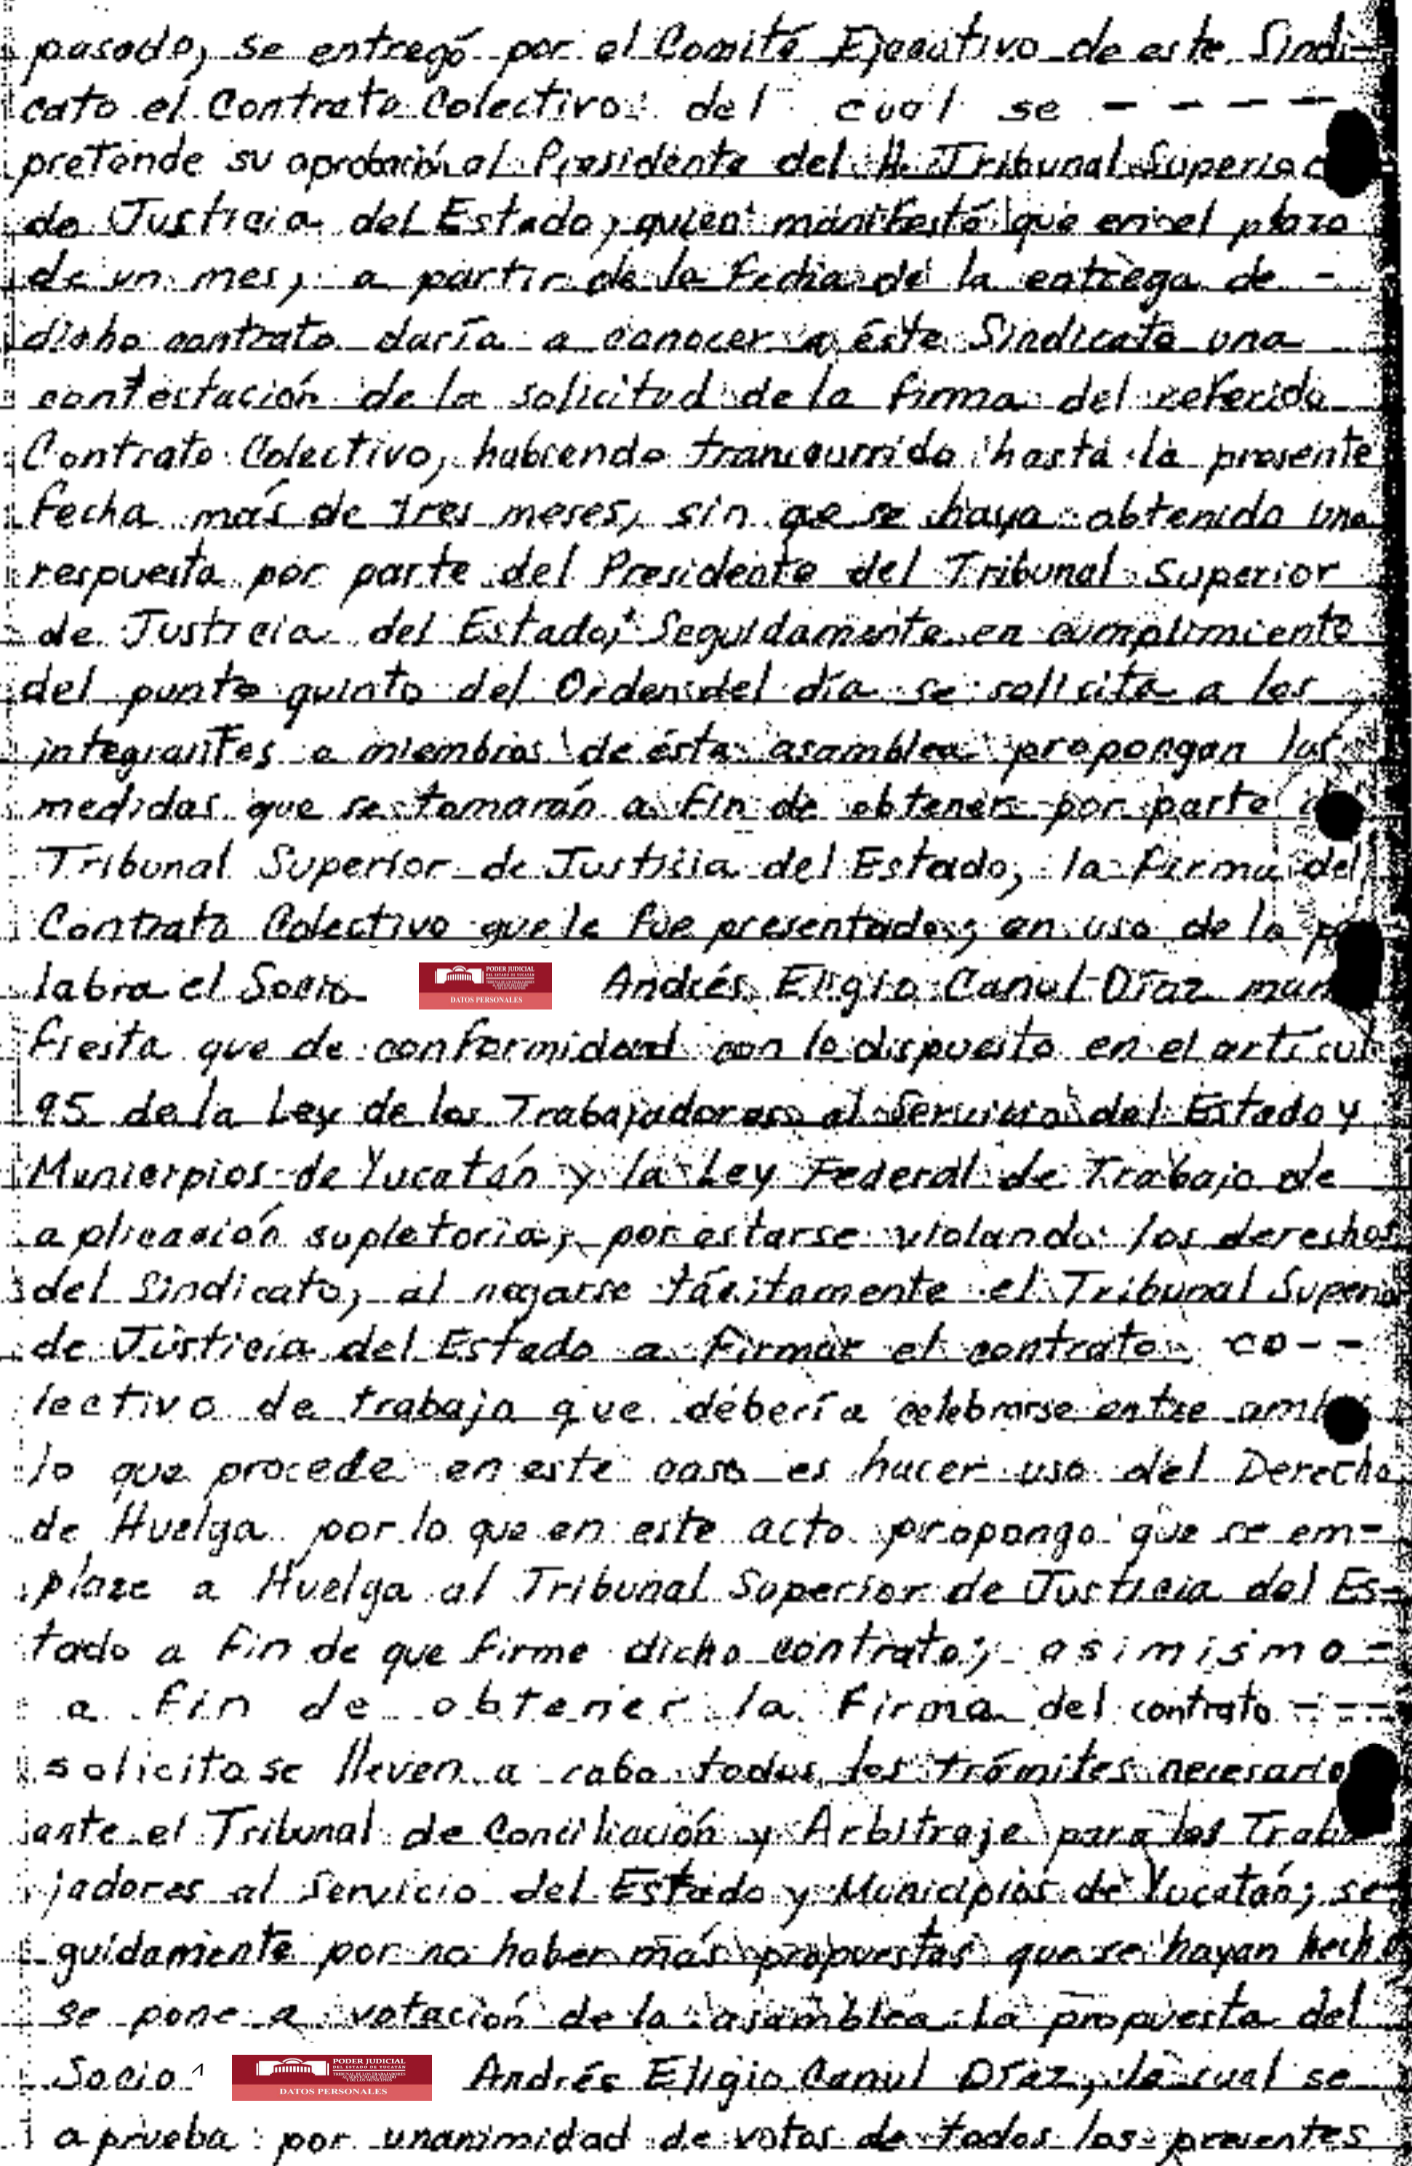 pasado, se entregó por el Comité Ejecutivo de este Sindi-
cato el Contrato Colectivo del cual se - - - -
pretende su aprobación al Presidente del H. Tribunal Superior
de Justicia del Estado, quien manifestó que en el plazo
de un mes, a partir de la fecha de la entrega de -
dicho contrato daría a conocer a éste Sindicato una
contestación de la solicitud de la firma del referido
Contrato Colectivo, habiendo trancurrido hasta la presente
fecha más de tres meses, sin qe se haya obtenido una
respuesta por parte del Presidente del Tribunal Superior
de Justicia del Estado; Seguidamente en cumplimiento
del punto quinto del Orden del día se solicita a los
integrantes o miembros de ésta asamblea propongan las
medidas que se tomarán a fin de obtener por parte
Tribunal Superior de Justicia del Estado, la firma del
Contrato Colectivo que le fue presentado; en uso de la pa
labra el Socio PODER JUDICIAL DATOS PERSONALES Andrés Eligio Canul Díaz mani
fiesta que de conformidad con lo dispuesto en el artícul
95 de la Ley de los Trabajadores al Servicio del Estado y
Municipios de Yucatán y la Ley Federal de Trabajo de
aplicación supletoria; por estarse violando los derechos
del Sindicato, al negarse tácitamente el Tribunal Superio
de Justicia del Estado a firmar el contrato co - -
lectivo de trabajo que debería celebrarse entre ambos
lo que procede en este caso es hacer uso del Derecho
de Huelga por lo que en este acto propongo que se em-
plaze a Huelga al Tribunal Superior de Justicia del Es-
tado a fin de que firme dicho contrato; asimismo -
a fin de obtener la firma del contrato - - -
solicita se lleven a cabo todos los trámites necesario
ante el Tribunal de Conciliación y Arbitraje para los Traba
jadores al Servicio del Estado y Municipios de Yucatán; se
guidamente por no haber más propuestas que se hayan hecho
se pone a votación de la asamblea la propuesta del
Socio PODER JUDICIAL DATOS PERSONALES Andrés Eligio Canul Díaz, la cual se
aprueba por unanimidad de votos de todos los presentes